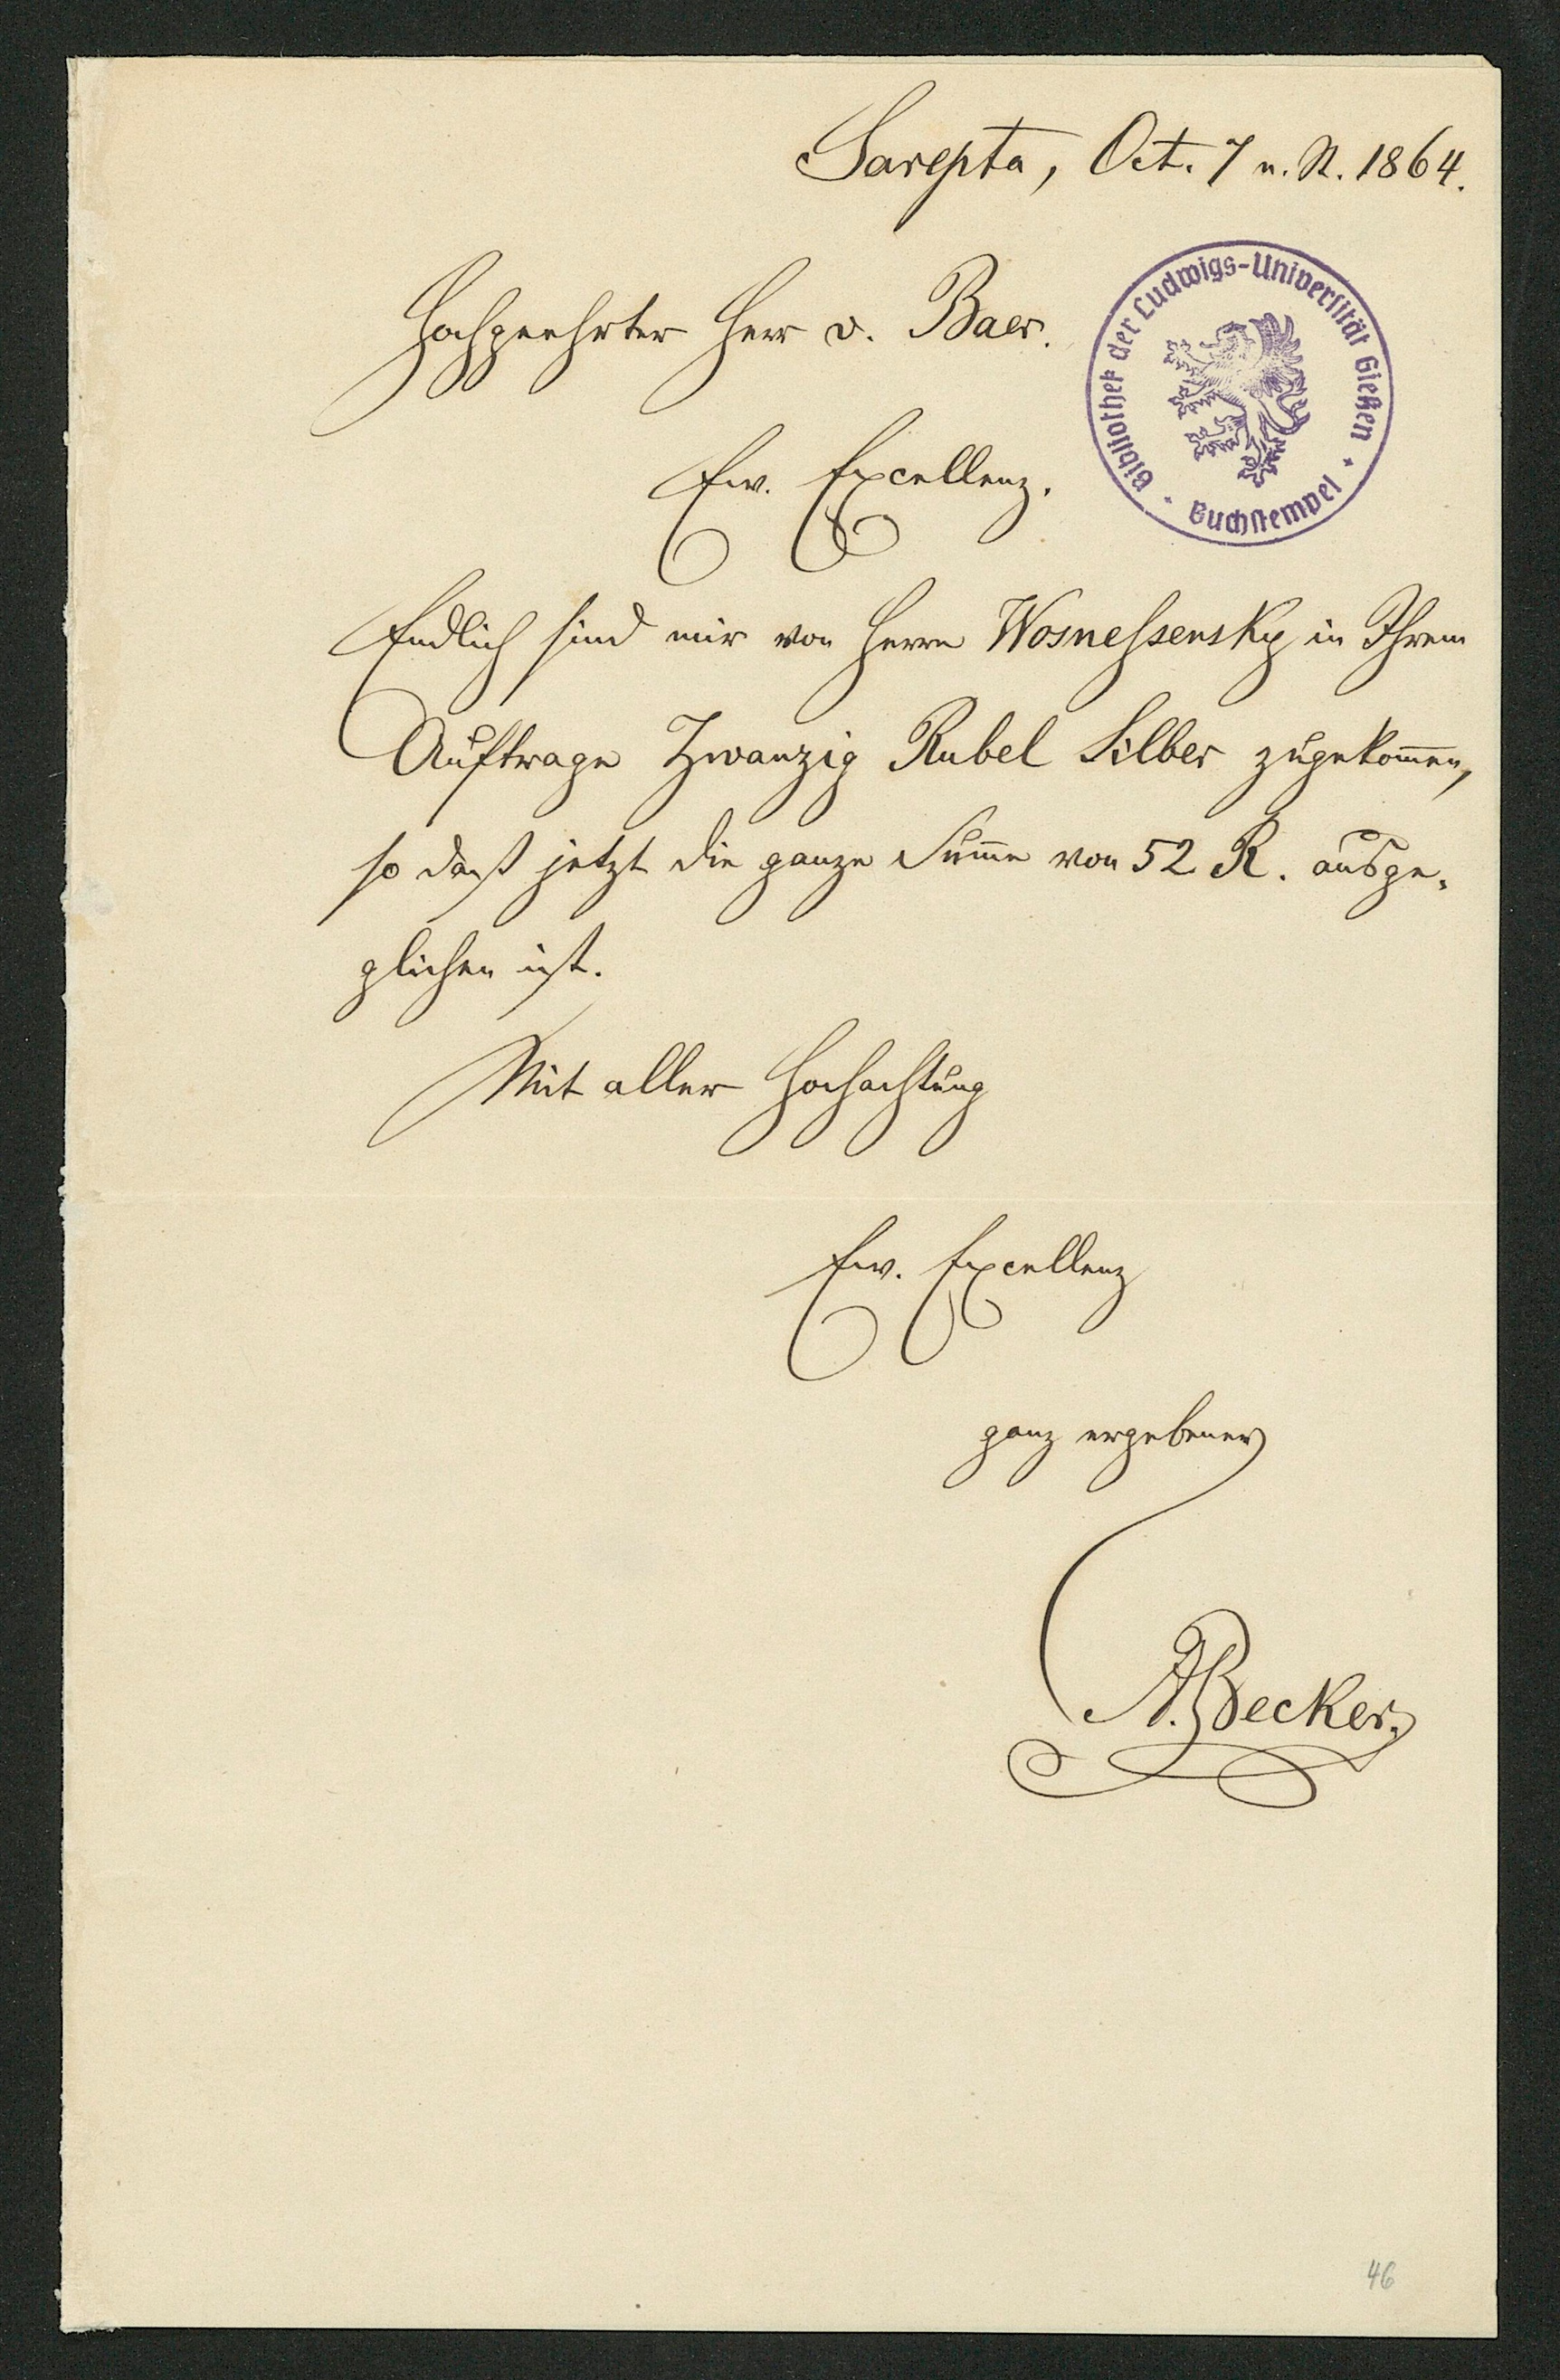 Sarepta, Oct. 7 n. St. 1864.
Hochgeehrter Herr v. Baer.
Bibliothek der Ludwigs-Universität Gießen
Buchstempel
Ew. Excellenz.
Endlich sind mir von Herrn Wosnessensky in Ihrem
Auftrage Zwanzig Rubel Silber zugekom̅en,
so daß jetzt die ganze Sum̅e von 52 R. ausge-
glichen ist.
Mit aller Hochachtung
Ew. Excellenz
ganz ergebener
A. Becker.
46